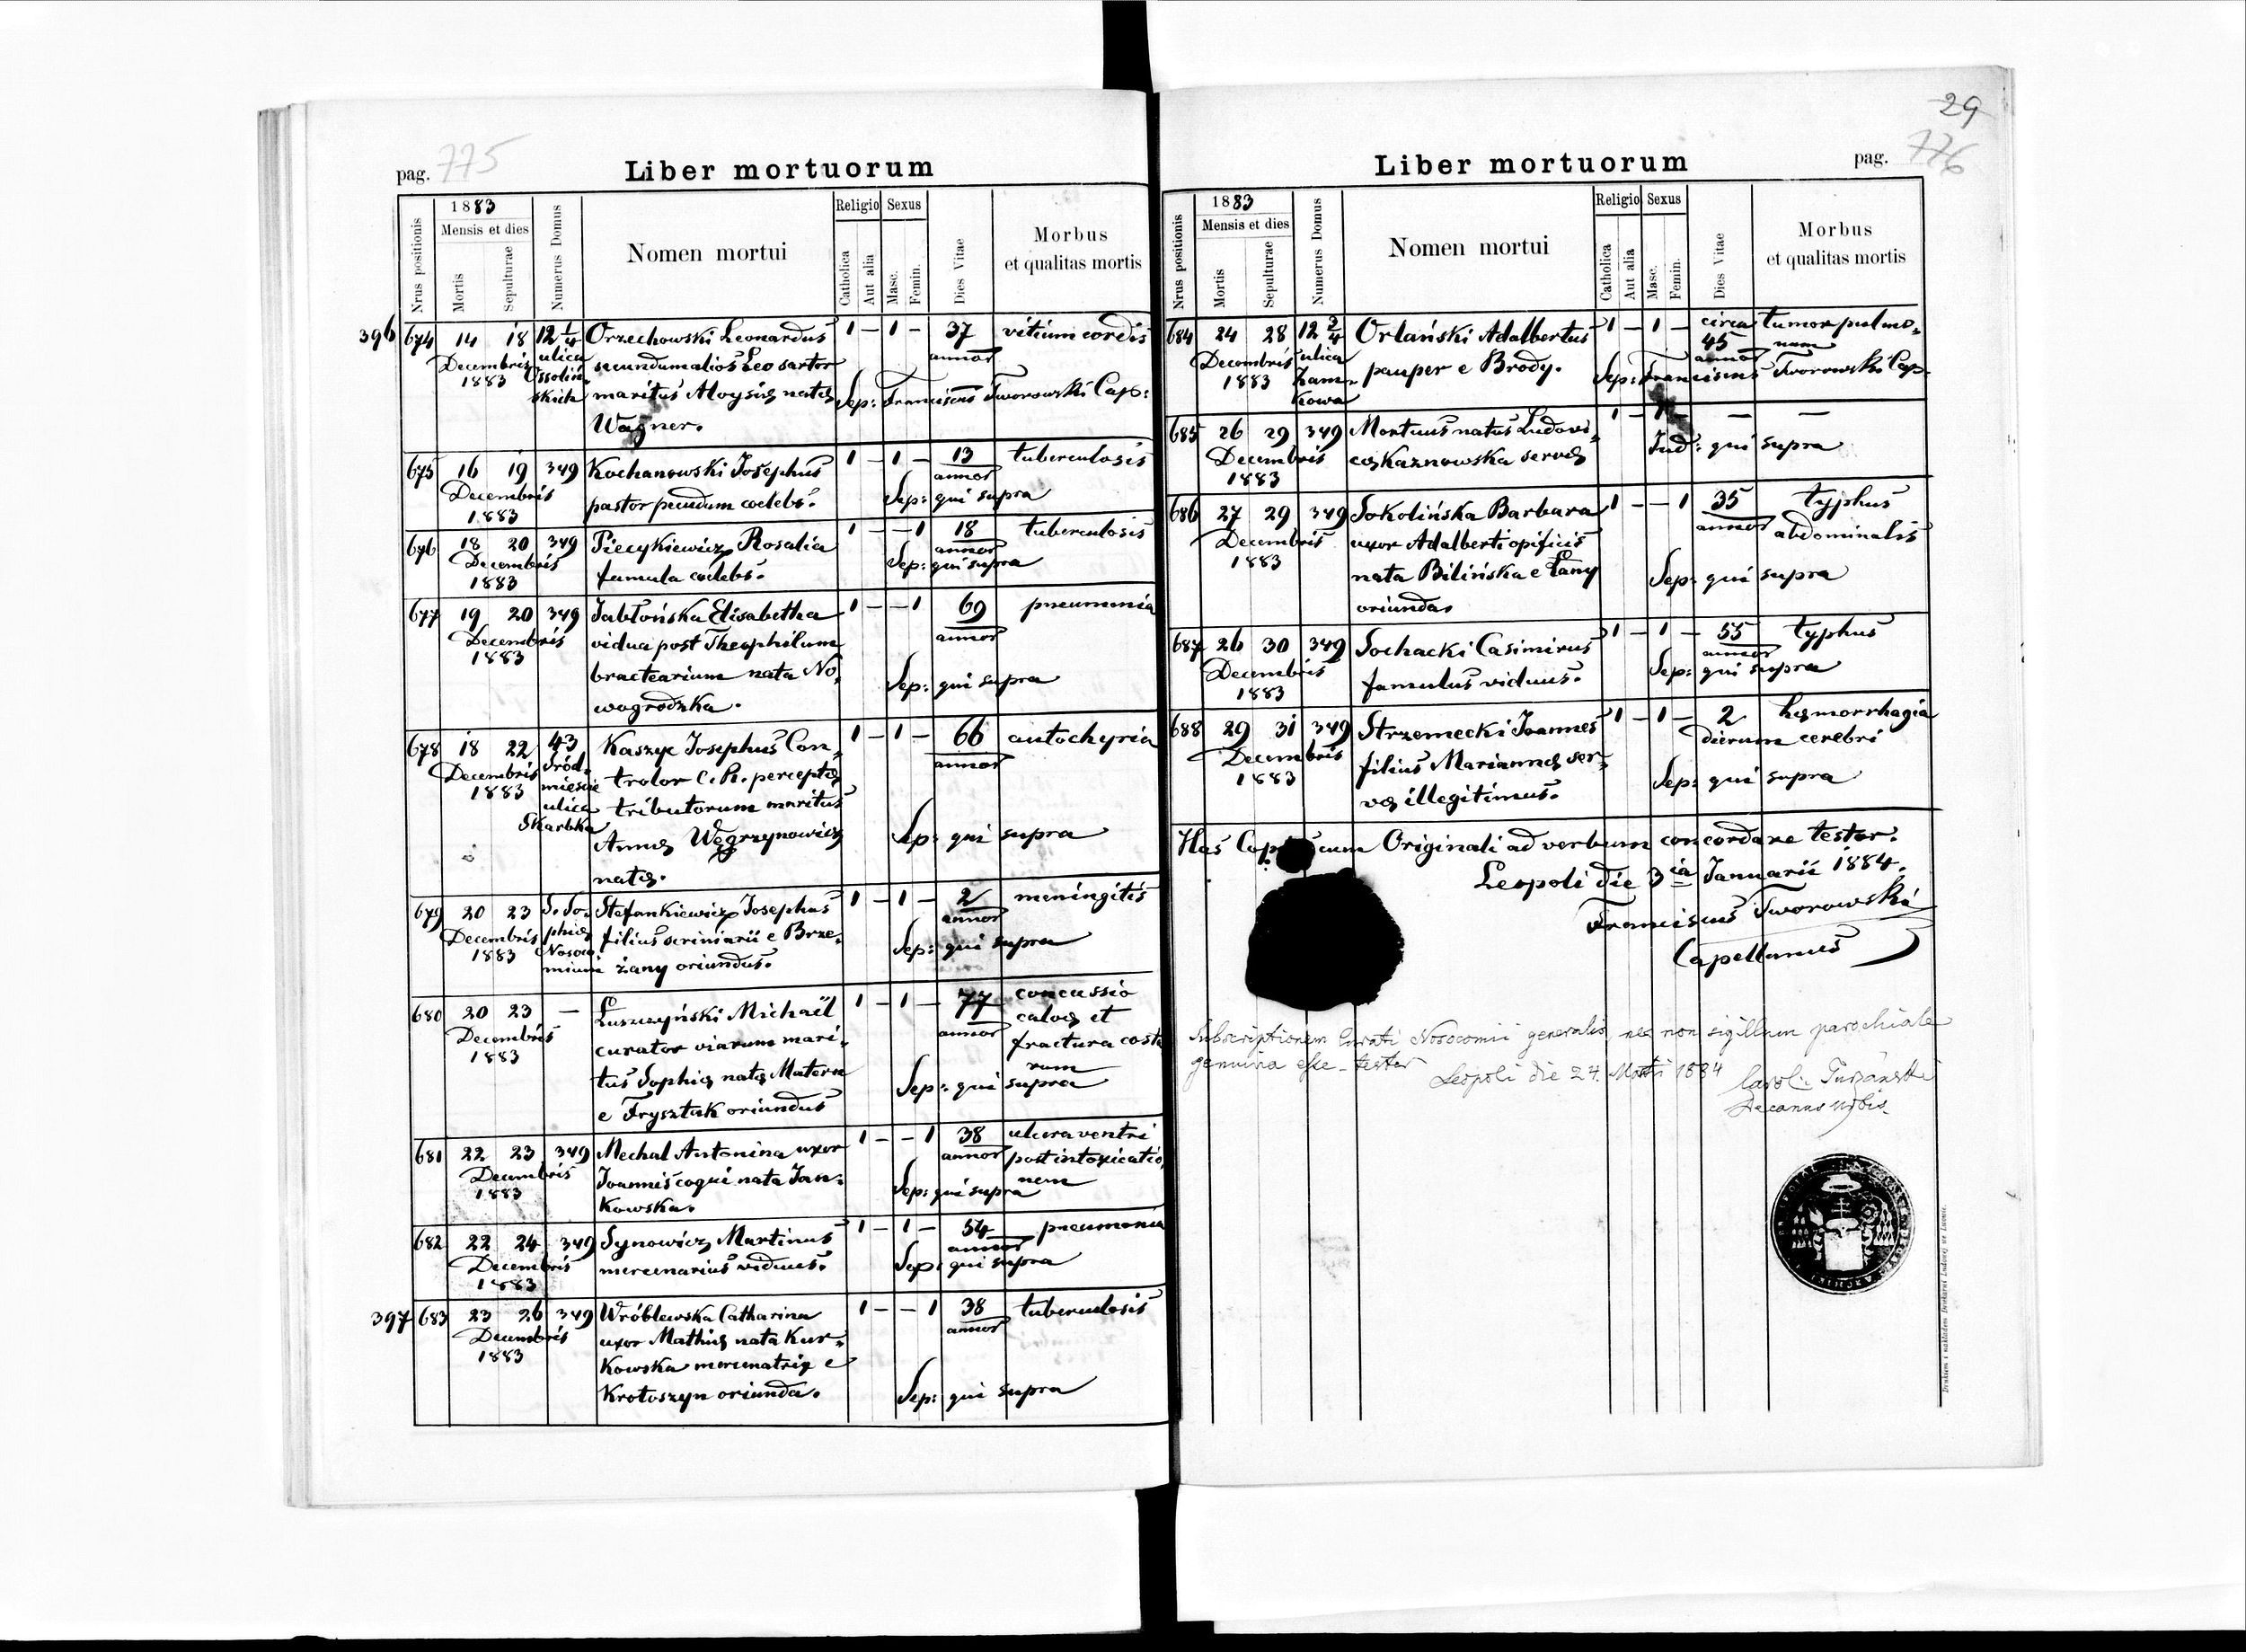 pag. 775
Liber mortuorum
Nrus positionis
1883
Mensis et dies
Mortis
Sepulturae
Numerus Domus
Nomen mortui
Religio
Catholica
Aut alia
Sexus
Masc.
Femin.
Dies Vitae
Morbus
et qualitas mortis
396 674 14 18 12 1/4 Orzechowski Leonardus 1 – 1 – 37 vitium cordis
Decembris ulica secundum alios Leo sartor annor
1883 Ossoliń- maritus Aloysiæ natæ Sep: Franciscus Tworowski Cap:
skich Wagner.
675 16 19 349 Kochanowski Josephus 1 – 1 – 13 tuberculosis
Decembris pastor pecudum coelebs. annor
1883 Sep: qui supra
676 18 20 349 Piecykiewicz Rosalia 1 – – 1 18 tuberculosis
Decembris famula coelebs. annor
1883 Sep: qui supra
677 19 20 349 Jabłońska Elisabetha 1 – – 1 69 pneumonia
Decembris vidua post Theophilum annor
1883 bractearium nata No-
wogrodzka. Sep: qui supra
678 18 22 43 Kaszyc Josephus Con- 1 – 1 – 66 autochyria
Decembris Śród- trolor C. R. perceptæ annor
1883 mieście tributorum maritus
ulica Annæ Węgrzynowicz Sep: qui supra
Skarbka natæ.
679 20 23 S. So- Stefankiewicz Josephus 1 – 1 – 2 meningitis
Decembris phiæ filius scriniarii e Brze- annor
1883 Nosoco- żany oriundus. Sep: qui supra
mium
680 20 23 – Łuszczyński Michaël 1 – 1 – 77 concussio
Decembris curator viarum mari- annor calvæ et
1883 tus Sophiæ natæ Matern fractura costa
e Frysztak oriundus rum
Sep: qui supra
681 22 23 349 Mechal Antonina uxor 1 – – 1 38 ulcera ventri
Decembris Joannis coqui nata Jan- annor post intoxicatio
1883 kowska. nem
Sep: qui supra
682 22 24 349 Synowicz Martinus 1 – 1 – 54 pneumonia
Decembris mercenarius viduus. annor
1883 Sep: qui supra
397 683 23 26 349 Wróblewska Catharina 1 – – 1 38 tuberculosis
Decembris uxor Mathiæ nata Kur- annor
1883 kowska mercenatrix e
Krotoszyn oriunda. Sep: qui supra
29
Liber mortuorum
pag. 776
Nrus positionis
1883
Mensis et dies
Mortis
Sepulturae
Numerus Domus
Nomen mortui
Religio
Catholica
Aut alia
Sexus
Masc.
Femin.
Dies Vitae
Morbus
et qualitas mortis
684 24 28 12 2/4 Orlański Adalbertus 1 – 1 – circa tumor pulmo-
Decembris ulica pauper e Brody. 45 num
1883 Zam- annor
kowa Sep: Franciscus Tworowski Cap.
685 26 29 349 Mortuus natus Ludovi- 1 – 1 – — —
Decembris cæ Kaznowska servæ Ind: qui supra
1883
686 27 29 349 Sokolińska Barbara 1 – – 1 35 typhus
Decembris uxor Adalberti opificis annor abdominalis
1883 nata Bilińska e Łany Sep: qui supra
oriunda
687 26 30 349 Sochacki Casimirus 1 – 1 – 55 typhus
Decembris famulus viduus. annor
1883 Sep: qui supra
688 29 31 349 Strzemecki Joannes 1 – 1 – 2 hæmorrhagia
Decembris filius Mariannæ ser- dierum cerebri
1883 væ illegitimus. Sep: qui supra
Has cum Originali ad verbum concordare testor.
Leopoli die 3 ia Januarii 1884.
Franciscus Tworowski
Capellanus
Subscriptionem Curati Nosocomii generalis, nec non sigillum parochiale
genuina esse testor
Leopoli die 24. 1884
Decanus urbis.
Drukiem i nakładem Drukarni Ludowej we Lwowie.